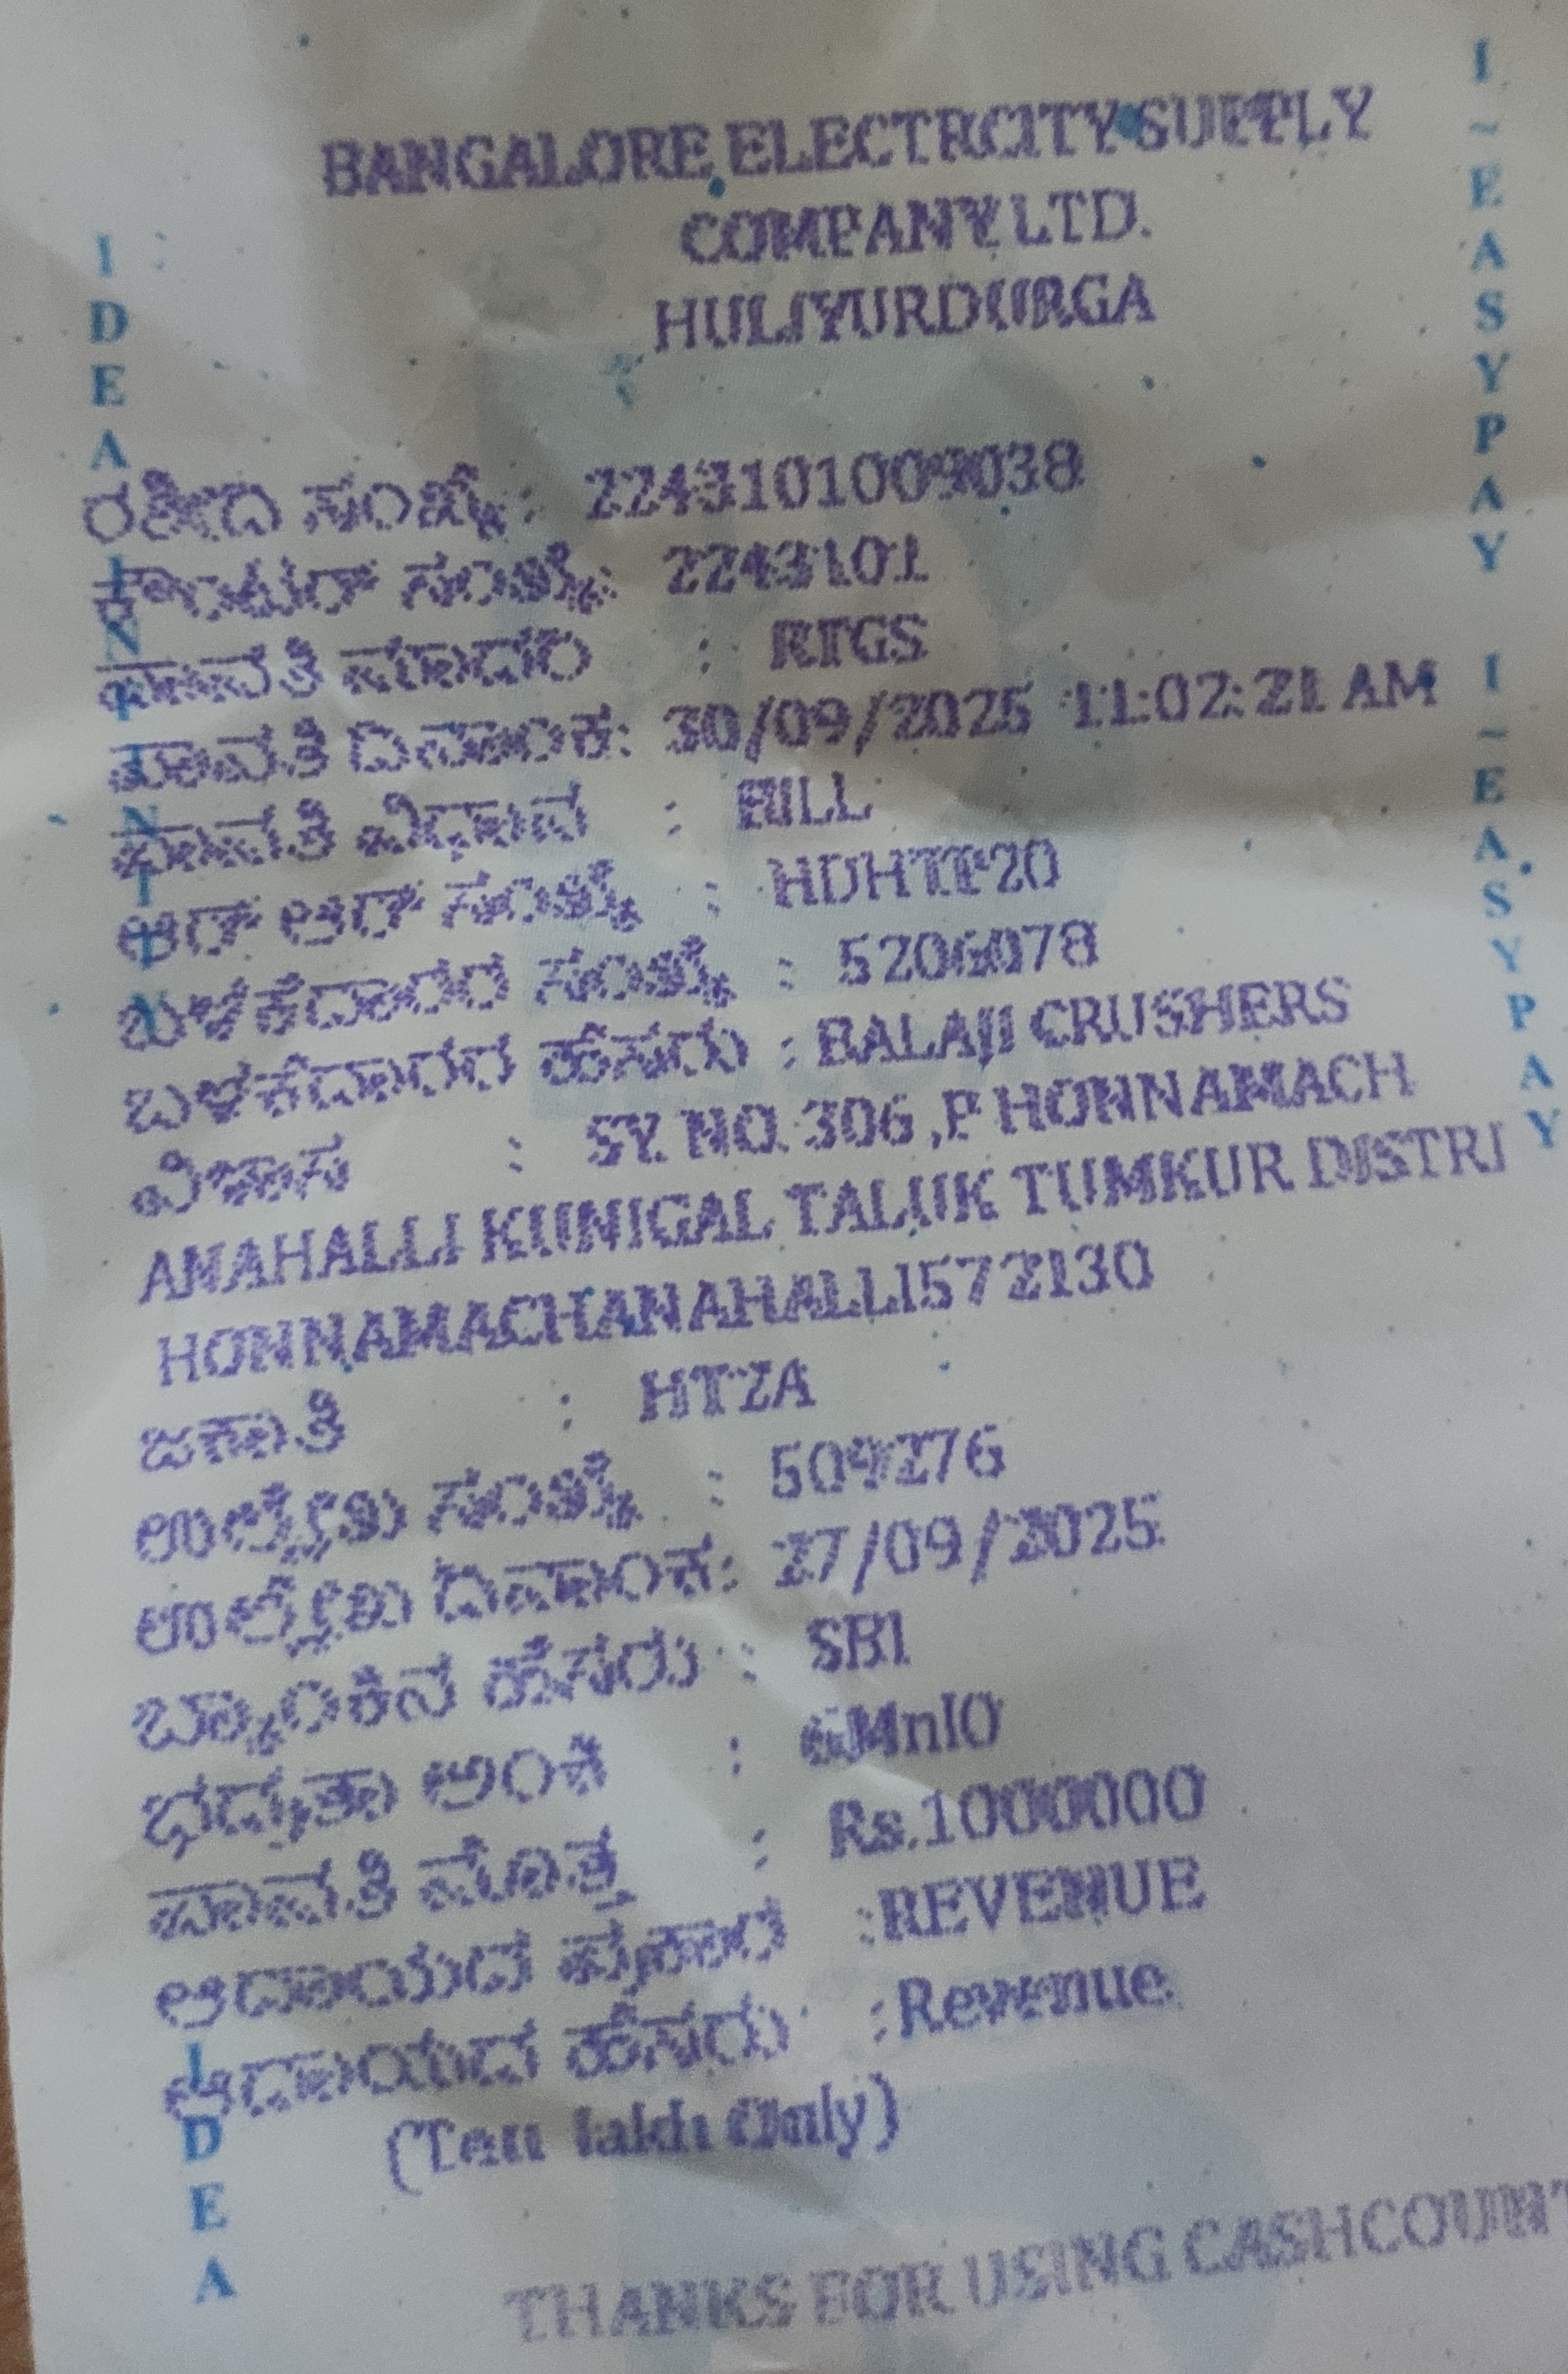 BANGALORE ELECTRCITY SUPPLY
COMPANY LTD.
HULIYURDURGA
ರಶೀದಿ ಸಂಖ್ಯೆ : 2243101009038
ಕೌಂಟರ್ ಸಂಖ್ಯೆ: 2243101
ಪಾವತಿ ಮಾದರಿ : RTGS
ಪಾವತಿ ದಿನಾಂಕ: 30/09/2025 11:02:21 AM
ಪಾವತಿ ವಿಧಾನ : BILL
ಆರ್ ಆರ್ ಸಂಖ್ಯೆ : HDHTP20
ಬಳಕೆದಾರರ ಸಂಖ್ಯೆ : 5206078
ಬಳಕೆದಾರರ ಹೆಸರು : BALAJI CRUSHERS
ವಿಳಾಸ : SY. NO. 306 ,P HONNAMACH
ANAHALLI KUNIGAL TALUK TUMKUR DISTRI
HONNAMACHANAHALLI572130
ಜಕಾತಿ : HT2A
ಉಲ್ಲೇಖ ಸಂಖ್ಯೆ : 509276
ಉಲ್ಲೇಖ ದಿನಾಂಕ: 27/09/2025
ಬ್ಯಾಂಕಿನ ಹೆಸರು : SBI
ಭದ್ರತಾ ಅಂಕಿ :
ಪಾವತಿ ಮೊತ್ತ : Rs.1000000
ಆದಾಯದ ಪ್ರಕಾರ :REVENUE
ಆದಾಯದ ಹೆಸರು :Revenue
(Ten lakh Only)
THANKS FOR USING CASHCOUNT
IDEA
INFINITI
IDEA
I~EASYPAY
I~EASYPAY